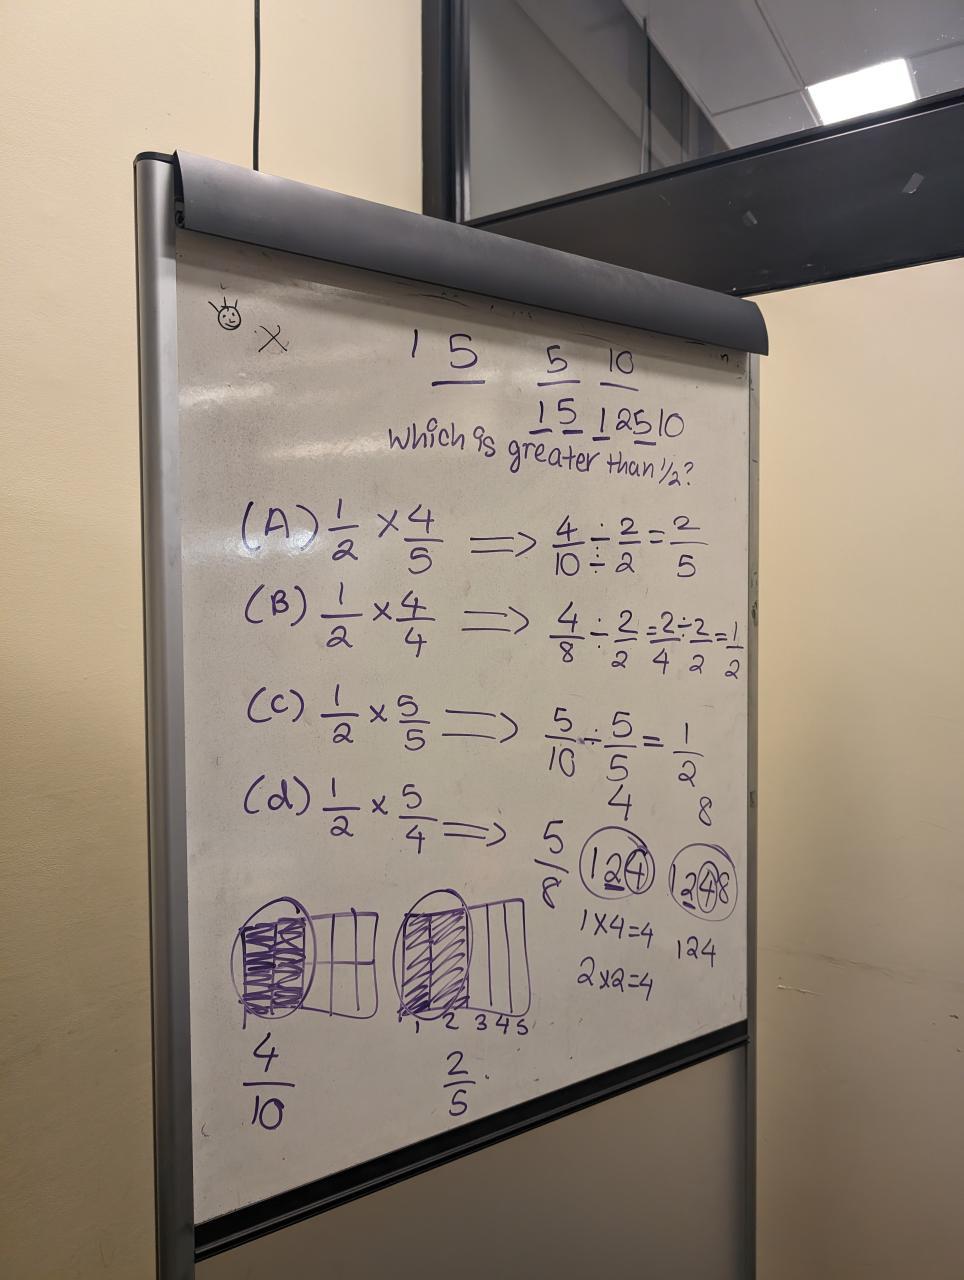 1 5 5 10
1 5 1 2 5 10
which is greater than 1/2?
(A) 1/2 × 4/5 ⟹ 4/10 ÷ 2/2 = 2/5
(B) 1/2 × 4/4 ⟹ 4/8 ÷ 2/2 = 2/4 ÷ 2/2 = 1/2
(C) 1/2 × 5/5 ⟹ 5/10 ÷ 5/5 = 1/2
(d) 1/2 × 5/4 ⟹ 5/8
4 8
1 2 4 1 2 4 8
1×4=4
2×2=4
1 2 4
1 2 3 4 5
4/10 2/5